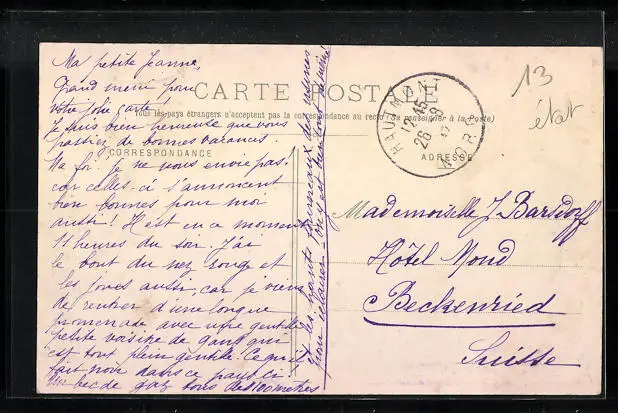 Ma petite Jeanne,
Grand merci pour
votre jolie carte !
Je suis bien heureuse que vous
passiez de bonnes vacances.
Ma foi! Je ne vous envie pas!
car celles-ci s'annoncent
bien bonnes pour moi
aussi! Il est en ce moment
11 heures du soir. J'ai
le bout du nez rouge et
les joues aussi, car je viens
de rentrer d'une longue
promenade avec une gentille
petite voisine de qui
est tout plein gentille. Ce qui
fait noir dans ce pays-ci
Un bec de gaz tous des 100 mètres
et les hauts fourneaux des usines
pour éclairer
CARTE POSTALE
Tous les pays étrangers n'acceptent pas la correspondance au recto (Se renseigner à la poste)
CORRESPONDANCE
ADRESSE
HAUTMONT
12 45
26 - 8
NORD
13
état
Mademoiselle J. Barsdorff
Hôtel Mond
Beckenried
Suisse